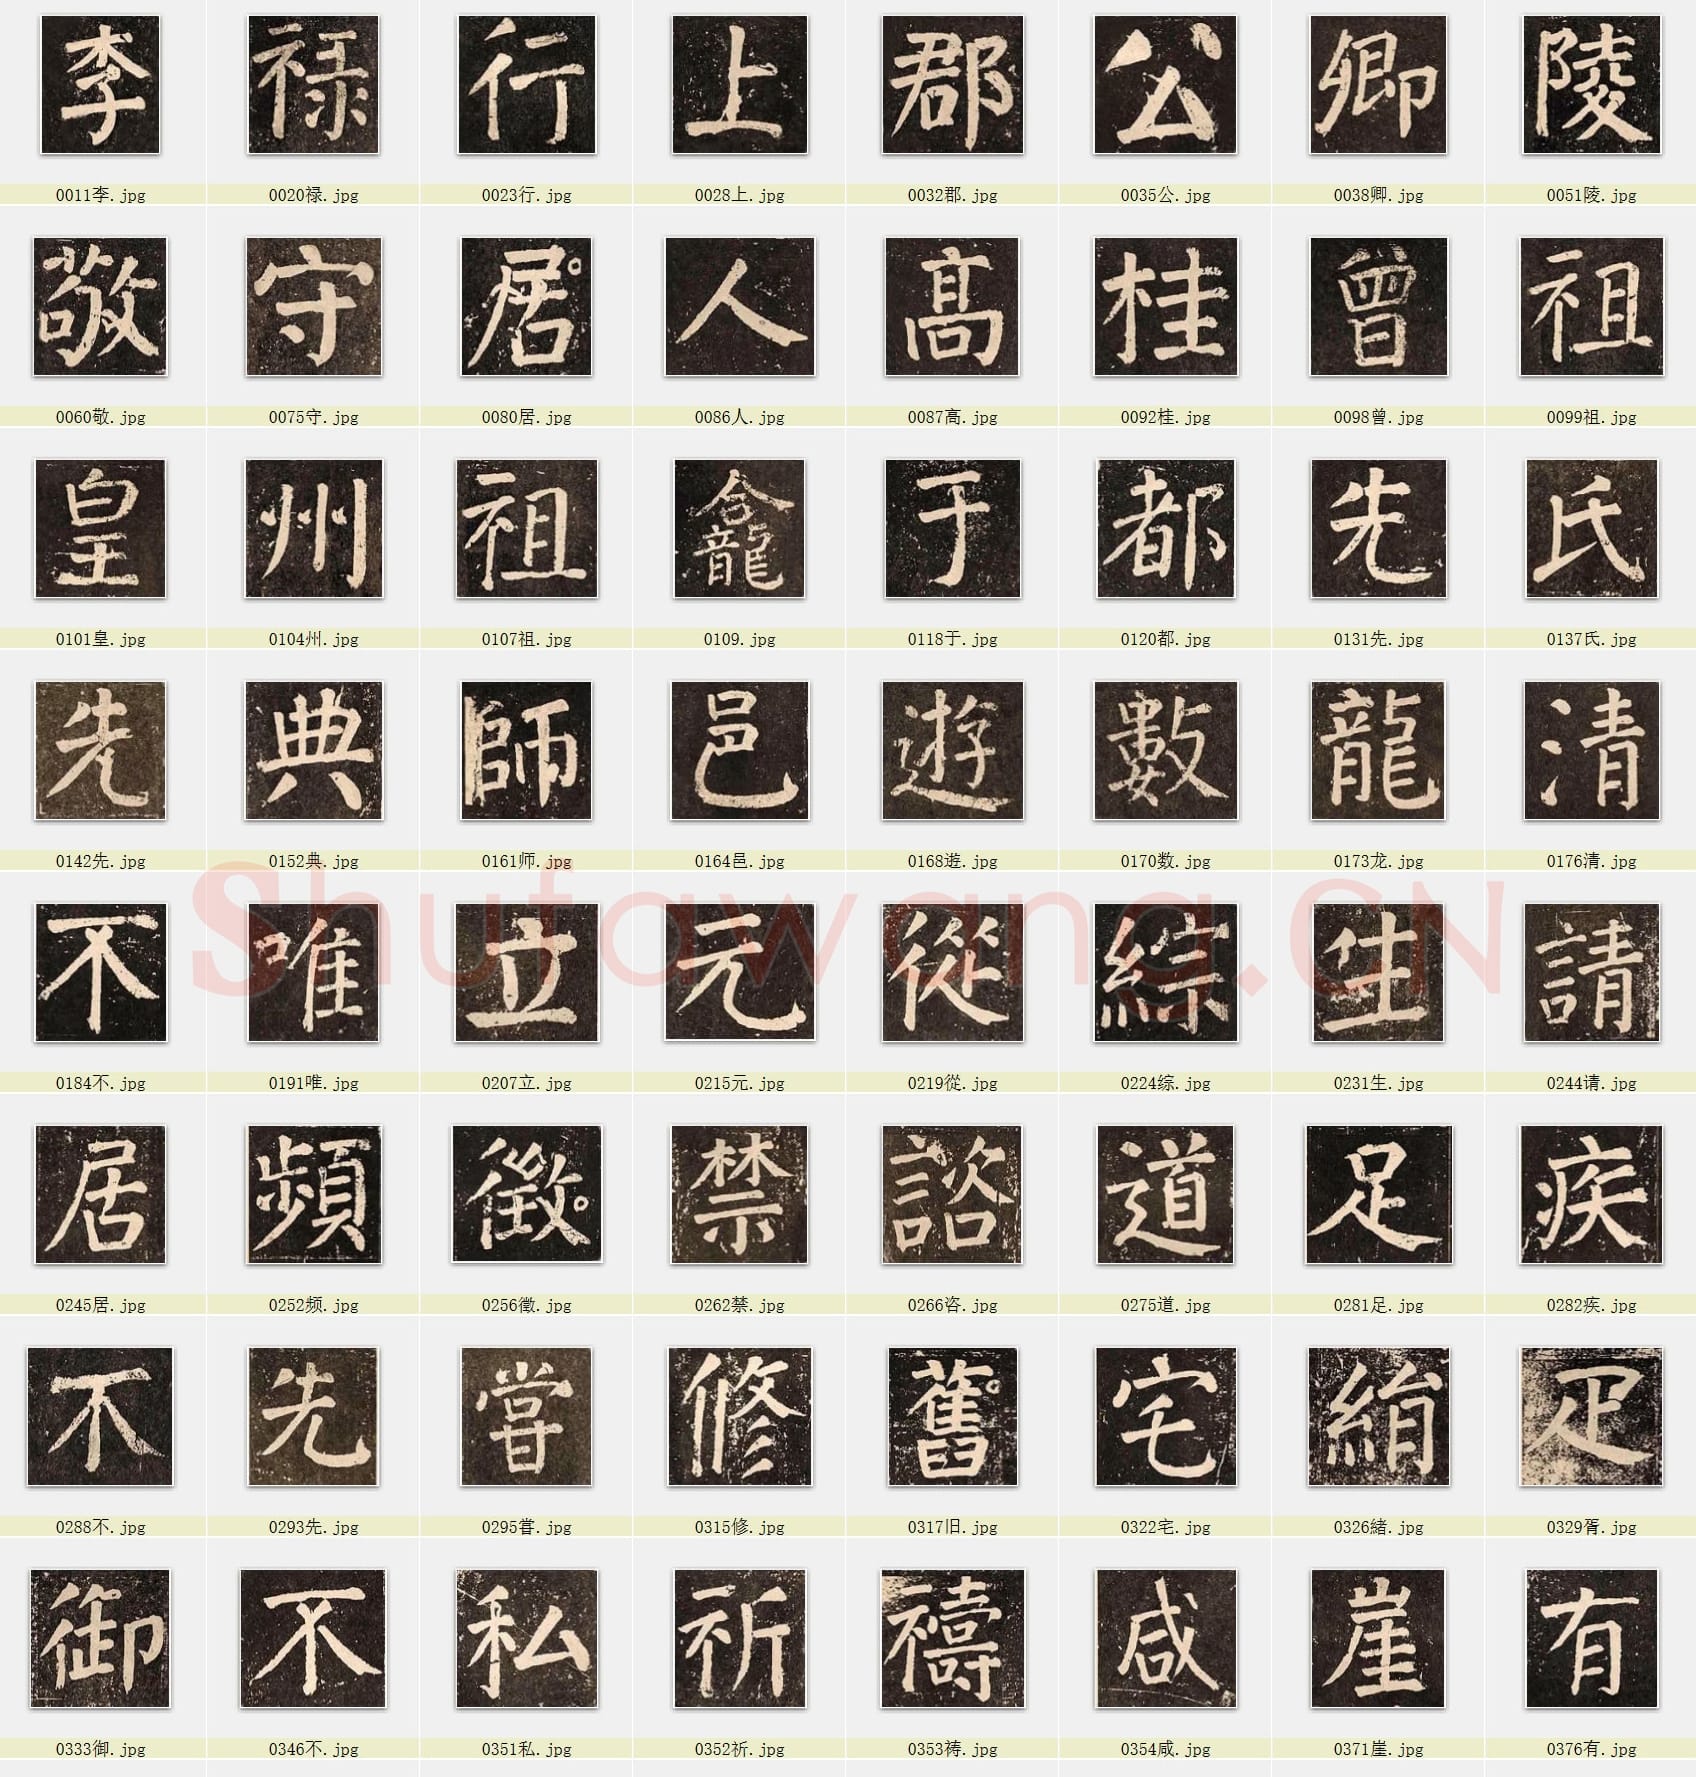 李 禄 行 上 郡 公 卿 陵
0011李.jpg 0020禄.jpg 0023行.jpg 0028上.jpg 0032郡.jpg 0035公.jpg 0038卿.jpg 0051陵.jpg
敬 守 居 人 高 桂 曾 祖
0060敬.jpg 0075守.jpg 0080居.jpg 0086人.jpg 0087高.jpg 0092桂.jpg 0098曾.jpg 0099祖.jpg
皇 州 祖 龕 于 都 先 氏
0101皇.jpg 0104州.jpg 0107祖.jpg 0109.jpg 0118于.jpg 0120都.jpg 0131先.jpg 0137氏.jpg
先 典 師 邑 遊 數 龍 清
0142先.jpg 0152典.jpg 0161师.jpg 0164邑.jpg 0168遊.jpg 0170数.jpg 0173龙.jpg 0176清.jpg
Shufawang.CN
不 唯 立 元 從 綜 生 請
0184不.jpg 0191唯.jpg 0207立.jpg 0215元.jpg 0219從.jpg 0224综.jpg 0231生.jpg 0244请.jpg
居 頻 徵 禁 諮 道 足 疾
0245居.jpg 0252频.jpg 0256徵.jpg 0262禁.jpg 0266咨.jpg 0275道.jpg 0281足.jpg 0282疾.jpg
不 先 嘗 修 舊 宅 緒 疋
0288不.jpg 0293先.jpg 0295甞.jpg 0315修.jpg 0317旧.jpg 0322宅.jpg 0326緒.jpg 0329胥.jpg
御 不 私 祈 禱 咸 崖 有
0333御.jpg 0346不.jpg 0351私.jpg 0352祈.jpg 0353祷.jpg 0354咸.jpg 0371崖.jpg 0376有.jpg